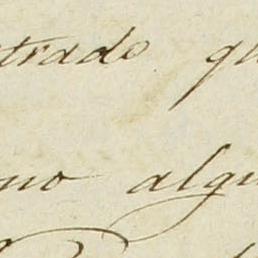 trado qu
no algu